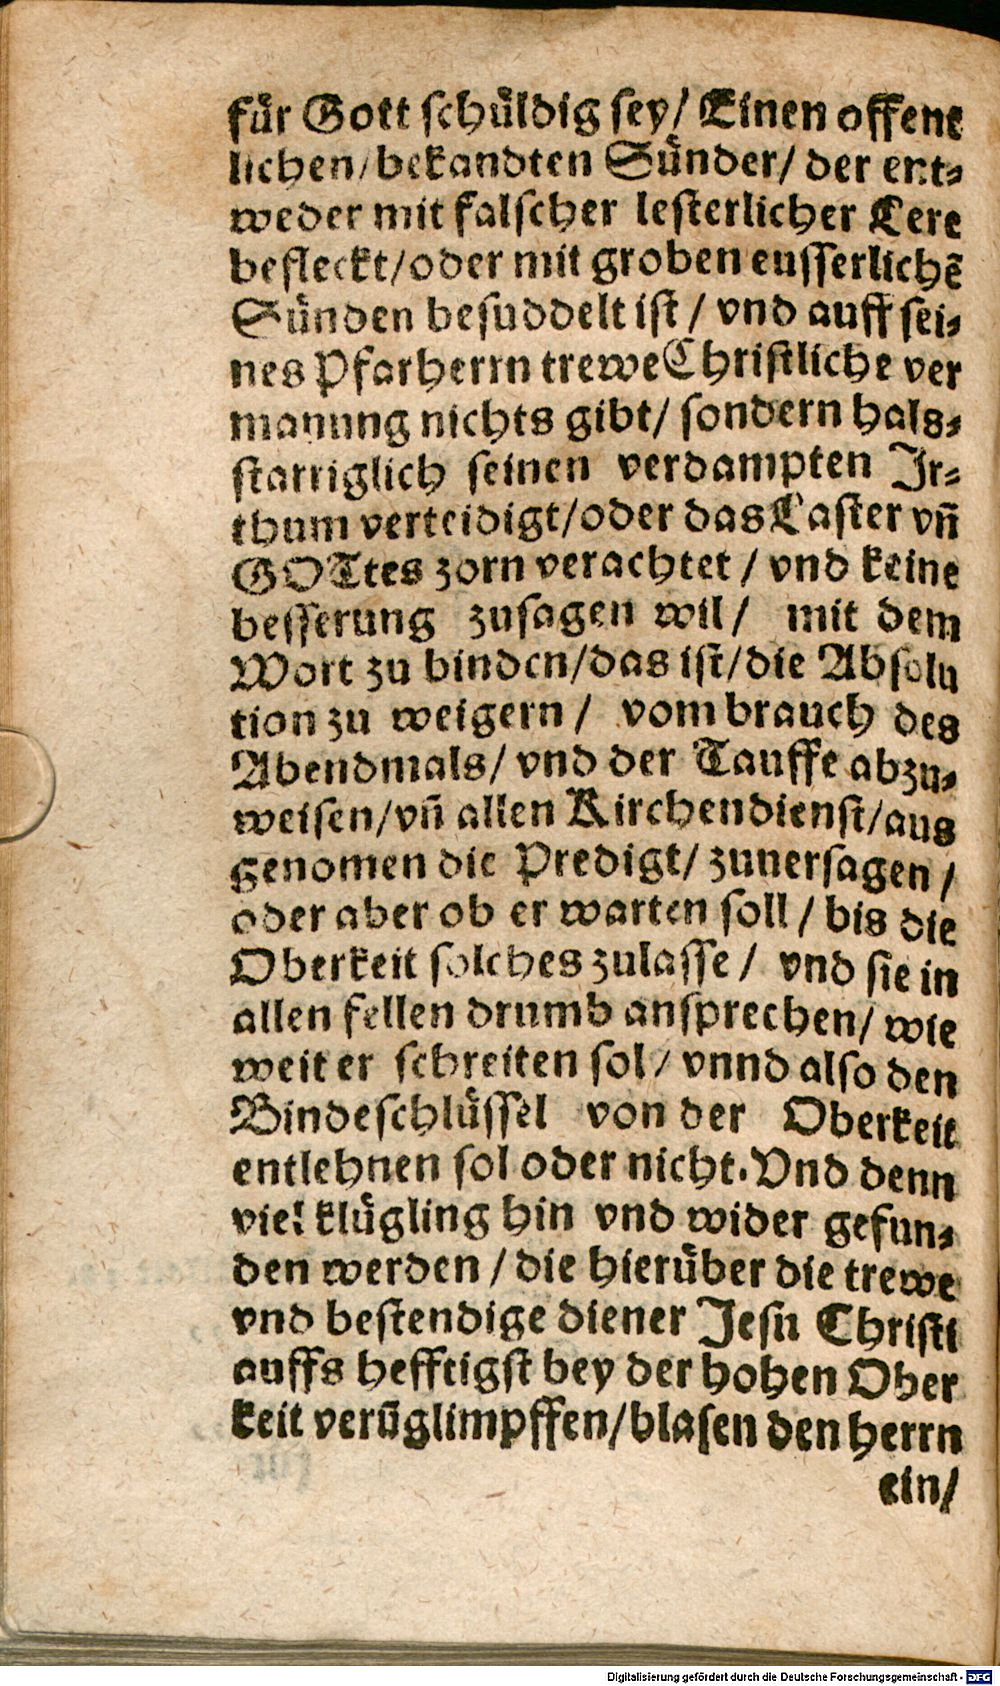 für Gott schüldig sey/ Einen offent
lichen/ bekandten Sünder/ der ent⸗
weder mit falscher lesterlicher Lere
befleckt/ oder mit groben eusserlichẽ
Sünden besuddelt ist / vnd auff sei⸗
nes Pfarherrn trewe Christliche ver
manung nichts gibt/ sondern hals⸗
starriglich seinen verdampten Jr⸗
thum verteidigt/ oder das Laster vñ
GOTtes zorn verachtet / vnd keine
besserung zusagen wil/ mit dem
Wort zu binden/ das ist/ die Absolu
tion zu weigern / vom brauch des
Abendmals/ vnd der Tauffe abzu⸗
weisen/ vñ allen Kirchendienst/ aus
genomen die Predigt/ zuuersagen /
oder aber ob er warten soll / bis die
Oberkeit solches zulasse / vnd sie in
allen fellen drumb ansprechen/ wie
weit er schreiten sol/ vnnd also den
Bindeschlüssel von der Oberkeit
entlehnen sol oder nicht. Vnd denn
viel klügling hin vnd wider gefun⸗
den werden / die hierüber die trewe
vnd bestendige diener Jesu Christi
auffs hefftigst bey der hohen Ober
keit verũglimpffen/ blasen den herrn
ein/
Digitalisierung gefördert durch die Deutsche Forschungsgemeinschaft - DFG